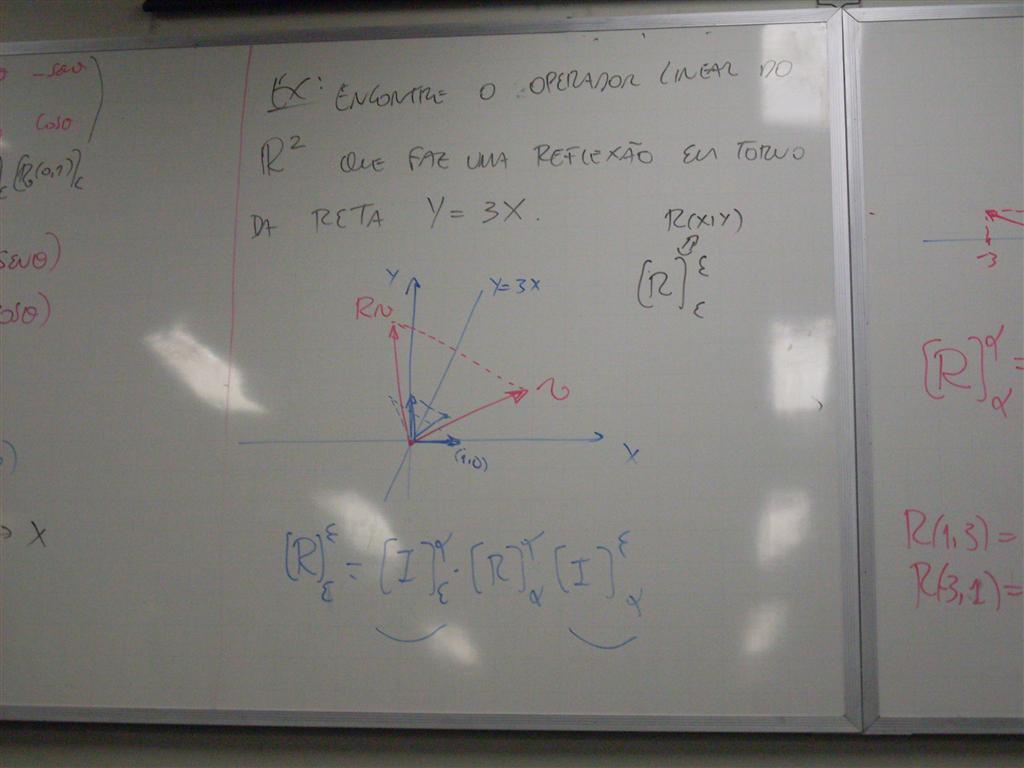 -senθ
cosθ
[R(0,1)]ε
senθ)
cosθ)
X
EX: ENCONTRE O OPERADOR LINEAR DO
R² QUE FAZ UMA REFLEXÃO EM TORNO
DA RETA Y = 3X.
R(X,Y)
[R]^ε_ε
Y
Y=3X
Rv
v
(1,0)
X
[R]^ε_ε = [I]^α_ε · [R]^α_α [I]^ε_α
-3
[R]^α_α =
R(1,3) =
R(-3,1) =